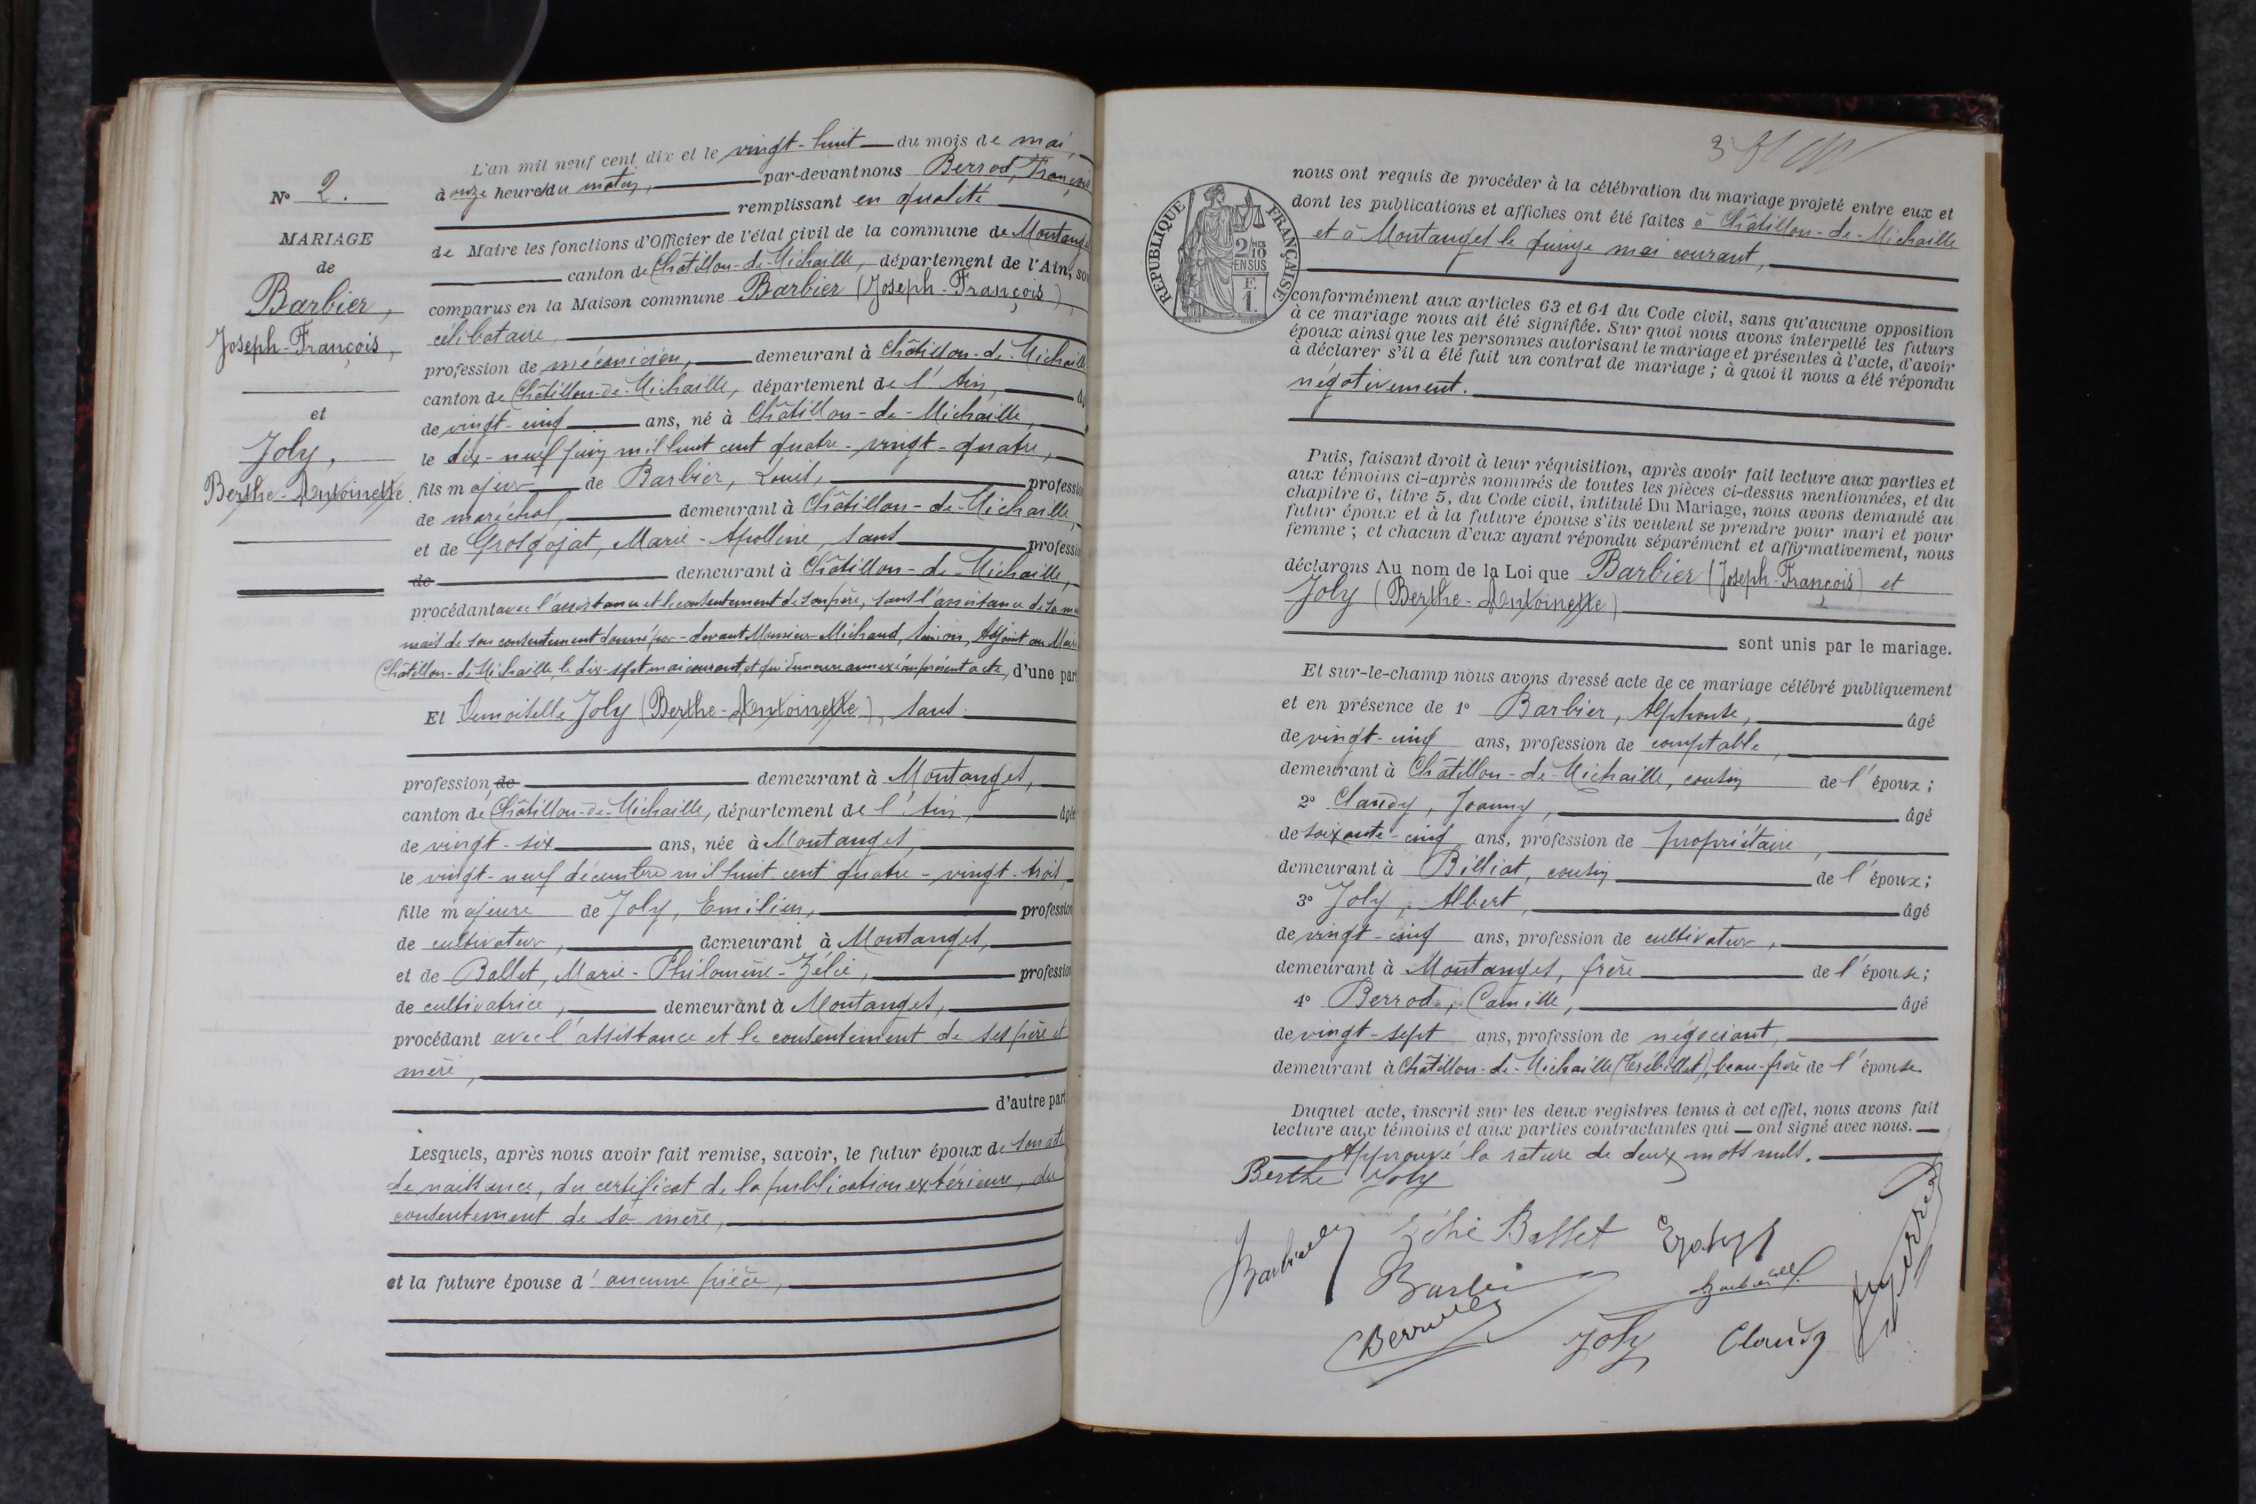 N° 2.
MARIAGE
de
Barbier,
Joseph-François,
et
Joly,
Berthe-Antoinette.
L'an mil neuf cent dix et le vingt-huit du mois de mai,
à onze heures du matin, par-devant nous Berrod, François
remplissant en qualité
de Maire les fonctions d'Officier de l'état civil de la commune de Montanges
canton de Châtillon-de-Michaille, département de l'Ain, so
comparus en la Maison commune Barbier (Joseph-François),
célibataire,
profession de mécanicien, demeurant à Châtillon-de-Michaille
canton de Châtillon-de-Michaille, département de l'Ain,
de vingt-cinq ans, né à Châtillon-de-Michaille,
le dix-neuf juin mil huit cent quatre-vingt-quatre,
fils majeur de Barbier, Louis, profession
de maréchal, demeurant à Châtillon-de-Michaille,
et de Grosgojat, Marie-Apolline, sans profession
de demeurant à Châtillon-de-Michaille,
procédant avec l'assistance et le consentement de son père, sans l'assistance de sa mère
mais de son consentement donné par-devant Monsieur Michaud, Adjoint au Maire
Châtillon-de-Michaille, le dix-sept mai courant, et qui demeure annexé au présent acte, d'une part
Et Demoiselle Joly (Berthe-Antoinette), sans
profession de demeurant à Montanges,
canton de Châtillon-de-Michaille, département de l'Ain, âgée
de vingt-six ans, née à Montanges,
le vingt-neuf décembre mil huit cent quatre-vingt-trois,
fille majeure de Joly, Emilien, profession
de cultivateur, demeurant à Montanges,
et de Ballet, Marie-Philomène-Zélie, profession
de cultivatrice, demeurant à Montanges,
procédant avec l'assistance et le consentement de ses père et
mère,
d'autre part
Lesquels, après nous avoir fait remise, savoir, le futur époux de son acte
de naissance, du certificat de la publication extérieure, du
consentement de sa mère,
et la future épouse d'aucune pièce,
3
RÉPUBLIQUE FRANÇAISE
2/10
EN SUS
F.
1.
nous ont requis de procéder à la célébration du mariage projeté entre eux et
dont les publications et affiches ont été faites à Châtillon-de-Michaille
et à Montanges le quinze mai courant,
conformément aux articles 63 et 64 du Code civil, sans qu'aucune opposition
à ce mariage nous ait été signifiée. Sur quoi nous avons interpellé les futurs
époux ainsi que les personnes autorisant le mariage et présentes à l'acte, d'avoir
à déclarer s'il a été fait un contrat de mariage ; à quoi il nous a été répondu
négativement.
Puis, faisant droit à leur réquisition, après avoir fait lecture aux parties et
aux témoins ci-après nommés de toutes les pièces ci-dessus mentionnées, et du
chapitre 6, titre 5, du Code civil, intitulé Du Mariage, nous avons demandé au
futur époux et à la future épouse s'ils veulent se prendre pour mari et pour
femme ; et chacun d'eux ayant répondu séparément et affirmativement, nous
déclarons Au nom de la Loi que Barbier (Joseph-François) et
Joly (Berthe-Antoinette)
sont unis par le mariage.
Et sur-le-champ nous avons dressé acte de ce mariage célébré publiquement
et en présence de 1° Barbier, Alphonse, âgé
de vingt-cinq ans, profession de comptable,
demeurant à Châtillon-de-Michaille, cousin de l'époux ;
2° Claudy, Joanny, âgé
de soixante-cinq ans, profession de propriétaire,
demeurant à Billiat, cousin de l'époux ;
3° Joly, Albert, âgé
de vingt-cinq ans, profession de cultivateur,
demeurant à Montanges, frère de l'épouse ;
4° Berrod, Camille, âgé
de vingt-sept ans, profession de négociant,
demeurant à Châtillon-de-Michaille (Trébillet), beau-frère de l'épouse
Duquel acte, inscrit sur les deux registres tenus à cet effet, nous avons fait
lecture aux témoins et aux parties contractantes qui ont signé avec nous.
Approuvé la rature de deux mots nuls.
Berthe Joly
Zélie Ballet
Joly
Claudy